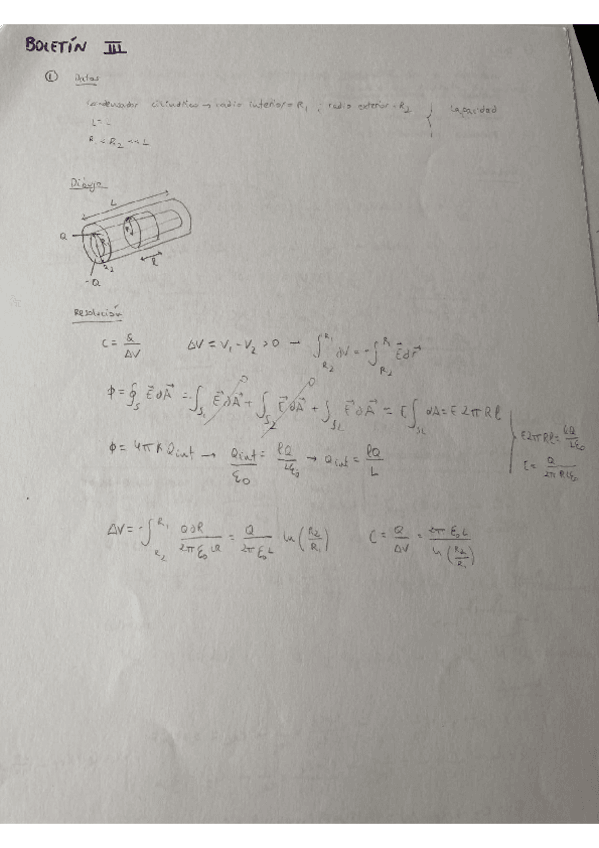 BOLETÍN III
① Datos
Condensador cilíndrico → radio interior = R₁ ; radio exterior = R₂ } Capacidad
L = 
R₂ << L
Dibujo
L
Q
R₂
-Q
l
Resolución
C = Q/ΔV ΔV = V₁ - V₂ > 0 → ∫_{R₂}^{R₁} dV = -∫_{R₂}^{R₁} E⃗ dr⃗
Φ = ∮_S E⃗ dA⃗ = ∫_{S₁} E⃗ dA⃗ + ∫_{S₂} E⃗ dA⃗ + ∫_{SL} E⃗ dA⃗ = E ∫_{SL} dA = E 2π R l
Φ = 4π K Q int → Q int/ε₀ = lQ/Lε₀ → Q int = lQ/L
E 2π R l = lQ/Lε₀
E = Q/2π R L ε₀
ΔV = -∫_{R₂}^{R₁} Q dR/2π ε₀ L R = Q/2π ε₀ L ln (R₂/R₁) C = Q/ΔV = 2π ε₀ L/ln (R₂/R₁)